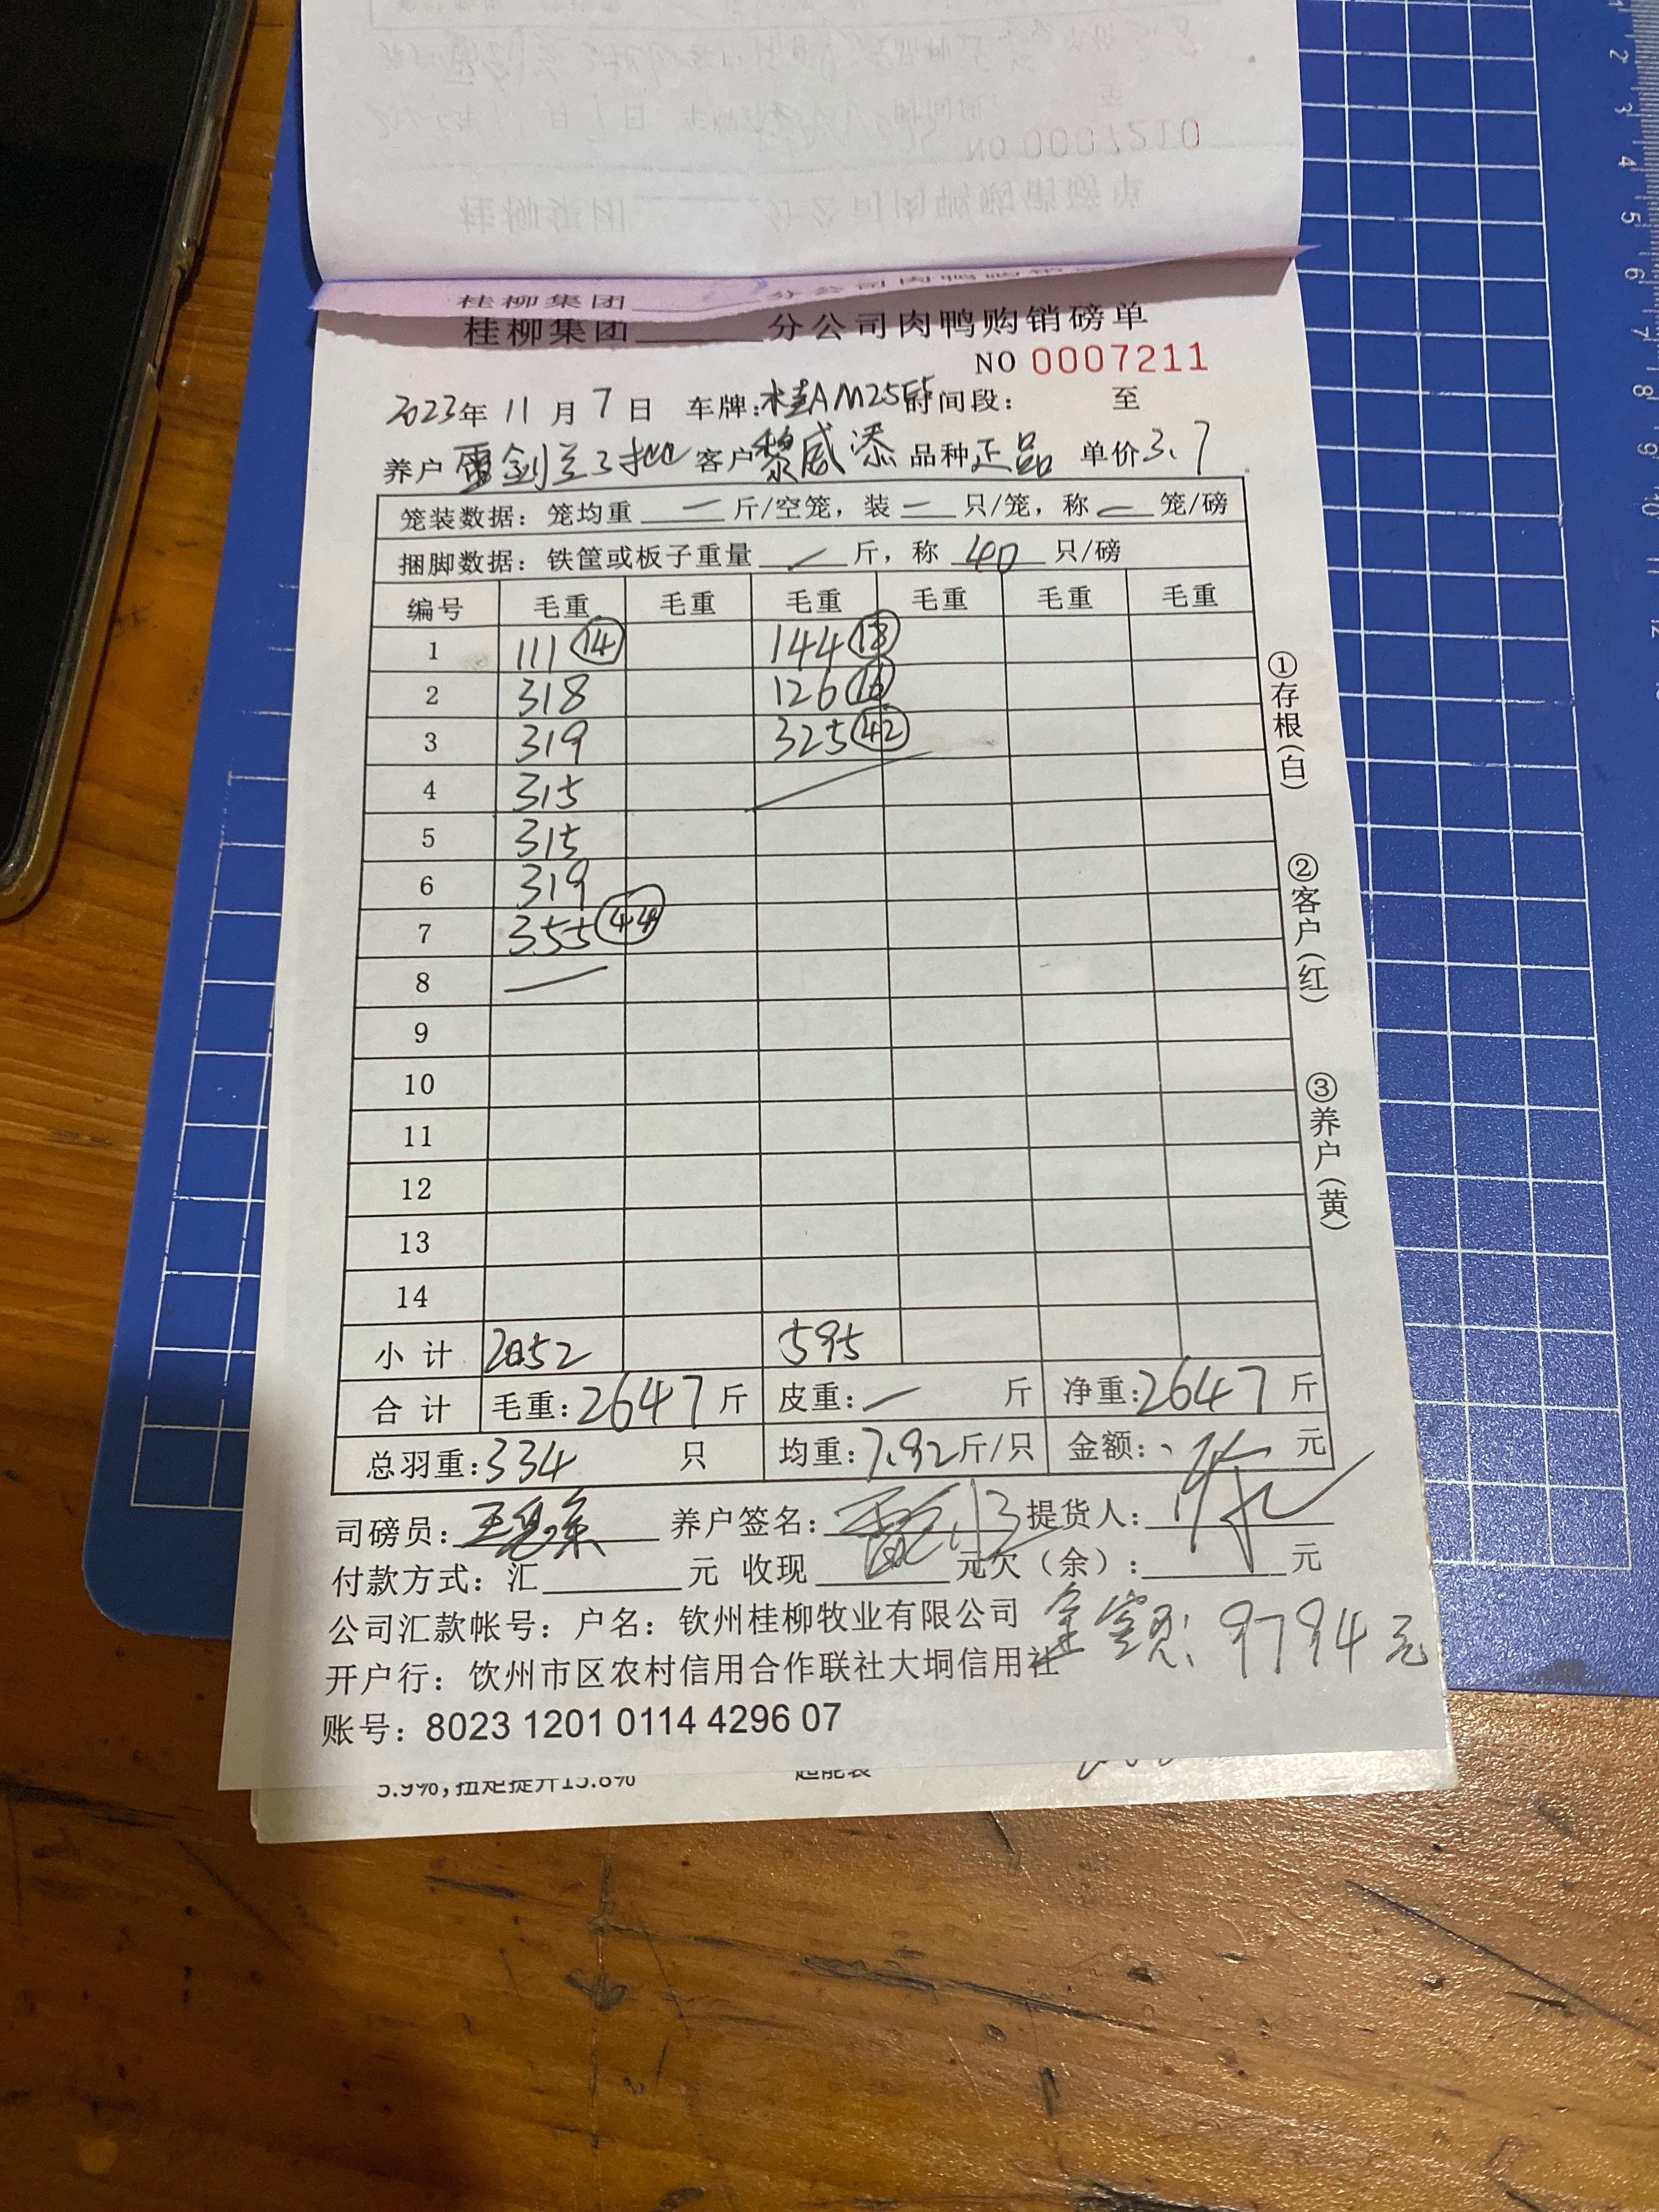 NO 0007210
桂柳集团 分公司肉鸭购销磅单
桂柳集团______分公司肉鸭购销磅单
NO 0007211
2023年 11 月 7 日 车牌:桂AM25E5 时间段: 至
养户 雷剑兰3批 客户 黎威添 品种 正品 单价 3.7
笼装数据: 笼均重 — 斤/空笼, 装 — 只/笼, 称 — 笼/磅
捆脚数据: 铁筐或板子重量 — 斤, 称 40 只/磅
编号 毛重 毛重 毛重 毛重 毛重 毛重
1 111 ⑭ 144 ⑱
2 318 126 ⑯
3 319 325 ㊷
4 315
5 315
6 319
7 355 ㊹
8 —
9
10
11
12
13
14
小计 2052 595
合计 毛重: 2647 斤 皮重: — 斤 净重: 2647 斤
总羽重: 334 只 均重: 7.92 斤/只 金额: 元
司磅员: 养户签名: 提货人:
付款方式: 汇______元 收现______元 欠(余):______元
公司汇款帐号: 户名: 钦州桂柳牧业有限公司 金额: 9794元
开户行: 饮州市区农村信用合作联社大垌信用社
账号: 8023 1201 0114 4296 07
①存根(白)
②客户(红)
③养户(黄)
5.9%,扭矩提升15.8%
超能装